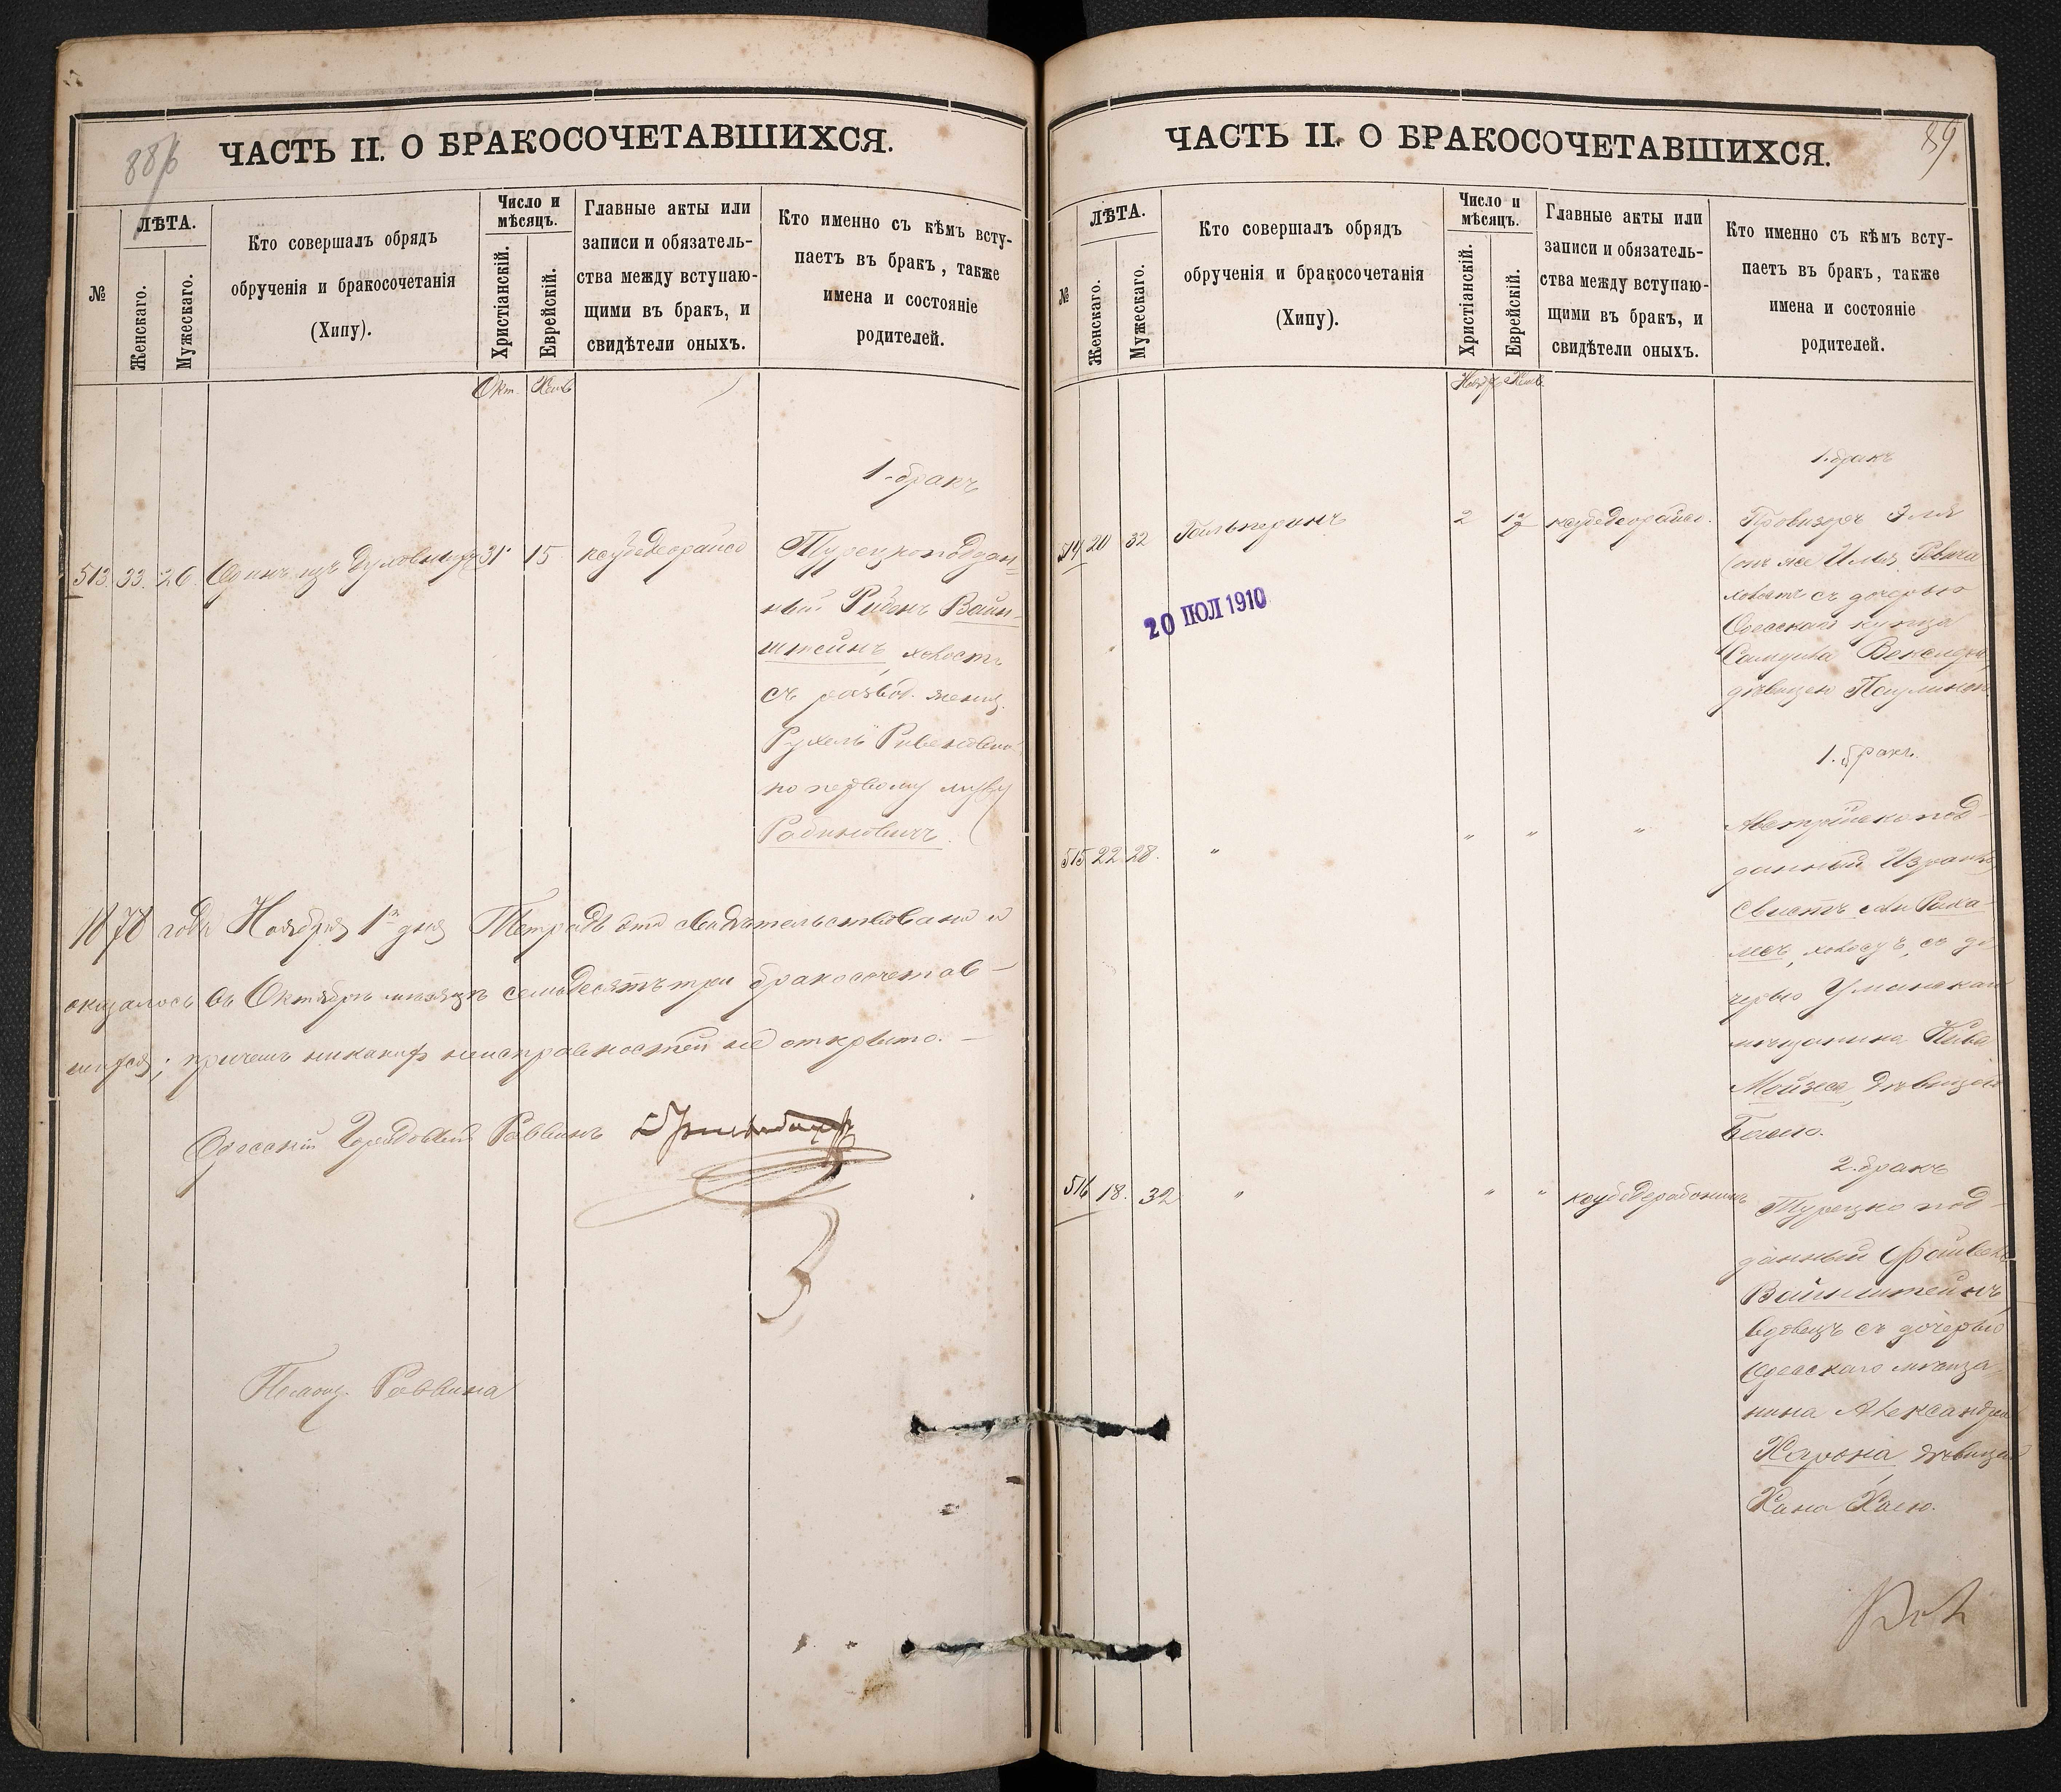 88/б
ЧАСТЬ II. О БРАКОСОЧЕТАВШИХСЯ.
№
ЛѢТА.
Женскаго.
Мужескаго.
Кто совершалъ обрядъ
обрученія и бракосочетанія
(Хипу).
Число и
мѣсяцъ.
Христіанскій.
Еврейскій.
Главные акты или
записи и обязатель-
ства между вступаю-
щими въ бракъ, и
свидѣтели оныхъ.
Кто именно съ кѣмъ всту-
паетъ въ бракъ, также
имена и состояніе
родителей.
Окт.
1. бракъ
513. 33. 26. Одинъ изъ духовныхъ 31 15
Турецкоподдан-
ный Рувенъ Вайн-
штейнъ, холостъ
съ развод. женщ.
Рухель Рувеновою
по первому мужу
Рабиновичъ.
1878 года Ноября 1го дня Тетрадь эта свидѣтельствована и
оказалось въ Октябрѣ мѣсяцѣ семьдесятъ три бракосочетав-
шихся; причемъ никакихъ неисправностей не открыто.
Одесскій Городовой Раввинъ
Помощ. Раввина
89
ЧАСТЬ II. О БРАКОСОЧЕТАВШИХСЯ.
№
ЛѢТА.
Женскаго.
Мужескаго.
Кто совершалъ обрядъ
обрученія и бракосочетанія
(Хипу).
Число и
мѣсяцъ.
Христіанскій.
Еврейскій.
Главные акты или
записи и обязатель-
ства между вступаю-
щими въ бракъ, и
свидѣтели оныхъ.
Кто именно съ кѣмъ всту-
паетъ въ бракъ, также
имена и состояніе
родителей.
1. бракъ
514 20 32 Гальперинъ 2 17
Провизоръ Эля
(онъ же Илья
холостъ съ дочерью
Одесскаго купца
Самуила Векслера,
дѣвицею Паулиною
20 ІЮЛ 1910
1. бракъ.
515 22 28. " " " "
Австрійско под-
данный Израиль
холостъ, съ до-
черью Уманскаго
мѣщанина
Мойзеса, дѣвицей
Басею.
2. бракъ
516 18. 32 " " "
Турецко под-
данный Файвель
Вайнштейнъ,
вдовецъ съ дочерью
Одесскаго мѣща-
нина Александра
дѣвицей
Хана Хаею.